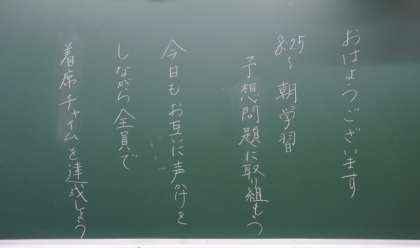 おはようございます
8:25〜 朝学習
予想問題に取り組もう
今日もお互いに声かけを
しながら全員で
着席チャイムを達成しよう